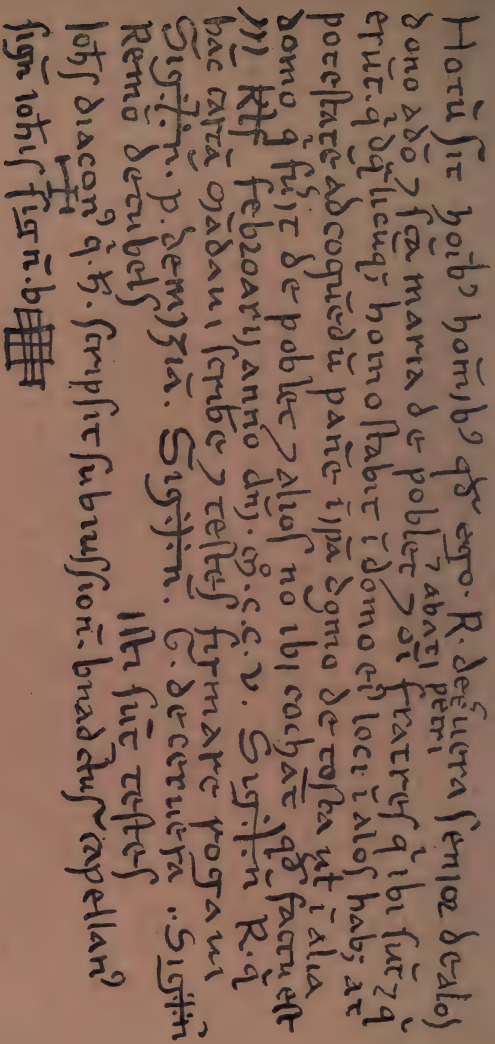 Notū sit hoib⁹ homīb⁹ qđ ego. R. de c̄uera senior de alos
dono a dō ⁊ scā maria de poblet ⁊ abati petri ⁊ oī fratres q̇ ibi sūt ⁊ q̇
erūt. q̇ đ q̇licuq̨ homo stabit ī domo ei loci ī alos hab; at
potestate ad coquēdū panē ī ip̄a domo de tosta ut ī alia
domo q̇ sīt de poblet ⁊ alios no ibi cochāt qđ factū est
III kłs febroarij anno dn̄j. m̊. c. c. v. Sig+n R. q̇
hāc cartā mādaui scribe ⁊ testes firmare rogaui
Sig+n. p. de mōzia. Sig+n. G. de ceruera. Sig+n
Remō de rubels isti sūt testes
Iohs diacon⁹ q̇. h̄. scripsit sub iussion̄. b̄nadcūs capellan⁹
sign̄ iohis sign̄. b